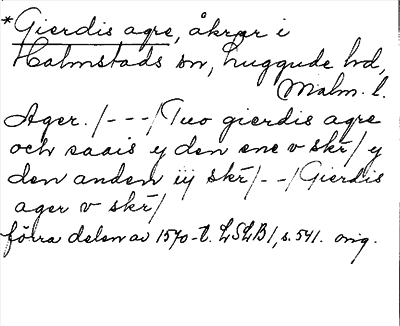 *Gierdis agre, åkrar i
Halmstads sn, Luggude hd,
Malm. l.
Ager. /---/ Tuo gierdis agre
och saais y den ene v skr̄/ y
den anden iij skr̄/--/ Gierdis
ager v skr̄/
förra delen av 1570-t. LSLB1, s. 541. orig.